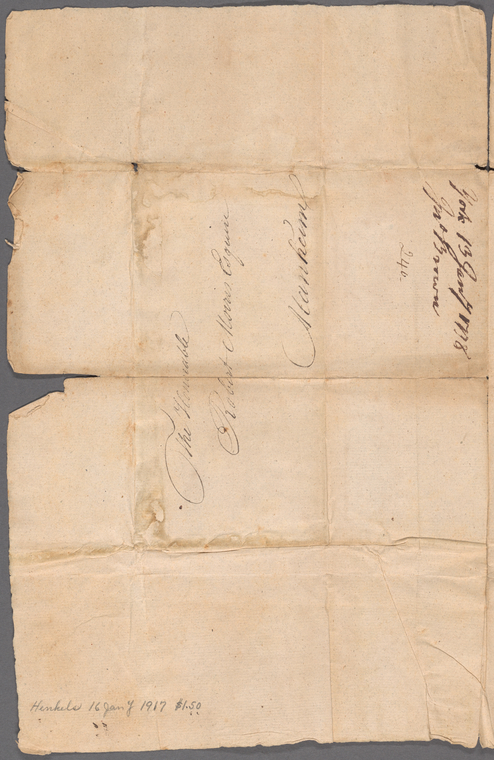 The Honorable
Robert Morris Esquire
Manheim
York 13 Jany 1778
Jno Brown
240.
Henkels 16 Jany 1917 $1.50